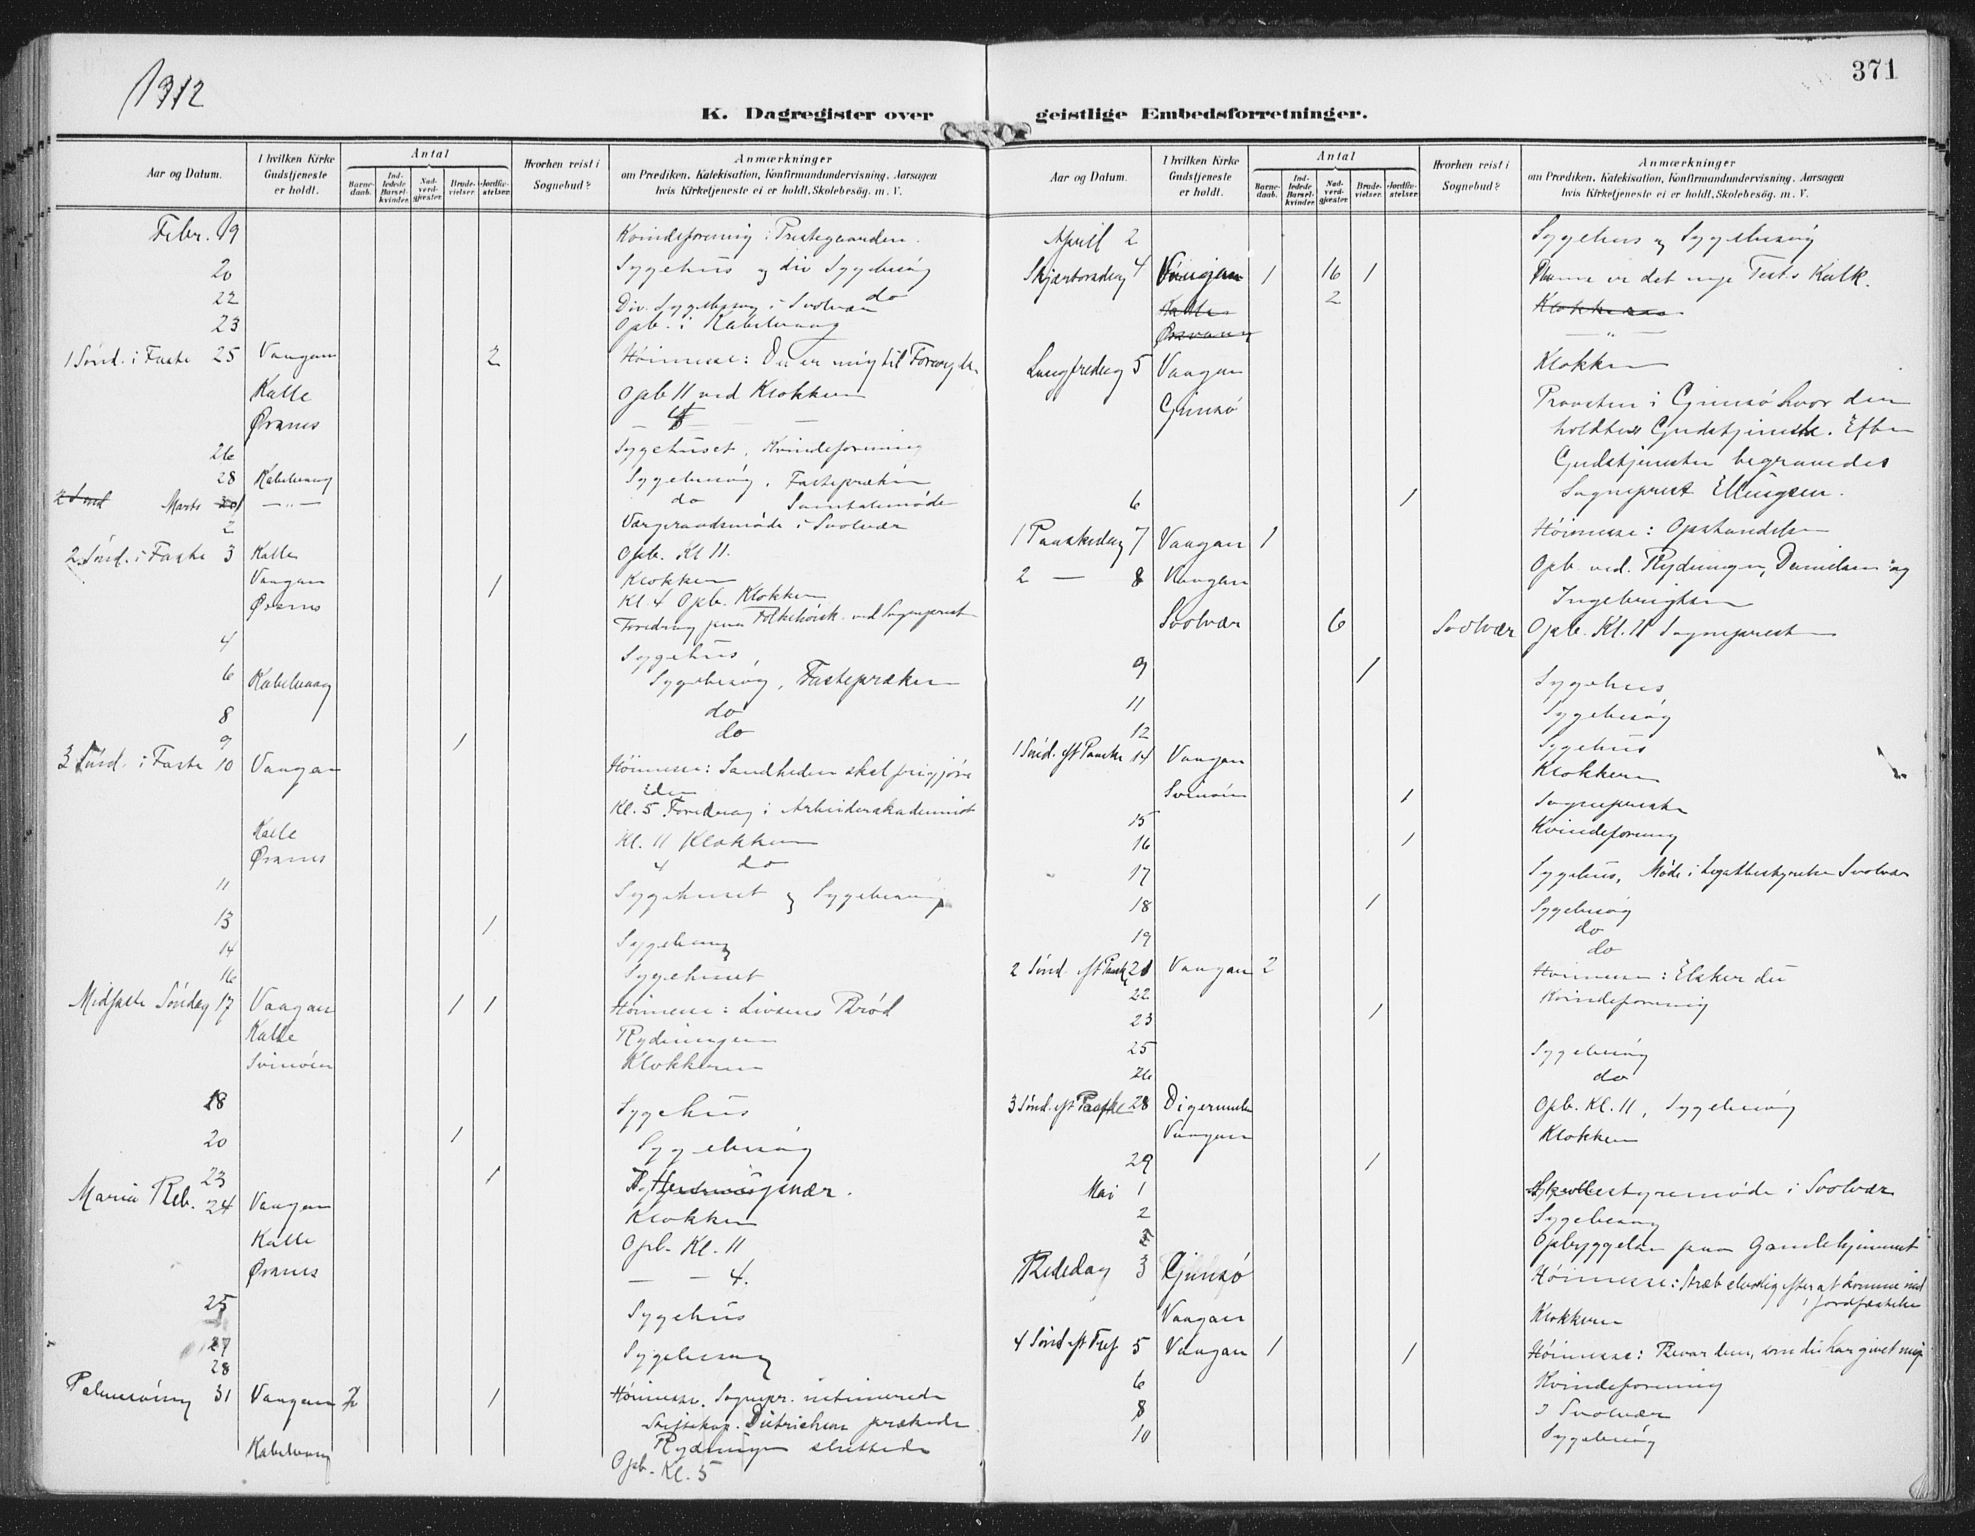 1912
371
K. Dagregister over geistlige Embedsforretninger.
Aar og Datum. I hvilken Kirke Gudstjeneste er holdt. Antal Barnedaab. Indledede Barselkvinder. Nadverdgjæster. Brudevielser. Jordfæstelser. Hvorhen reist i Sognebud? Anmærkninger om Prædiken, Katekisation, Konfirmandundervisning, Aarsagen hvis Kirketjeneste ei er holdt, Skolebesög. m. V.
Febr. 19 Kvindeforening i Prestegaarden.
20 Sygehus og div Sygebesøg
22 Div. Sygebesøg i Svolvær do
23 Opb. i Kabelvaag
1 Sønd. i Faste 25 Vaagan 2 Høimesse: Du er mig til
Kalle Opb 11 ved Klokkeren
Ørsnes 4 —
26 Sygehuset, Kvindeforening
28 Kabelvaag Sygebesøg, Fasteprækin
2 Sønd Marts 1 — " — do Samtalemøde
2 Værgeraadsmøde i Svolvær
2 Sønd. i Faste 3 Kalle Opb. Kl 11.
Vaagan 1 Klokkeren
Ørsnes Kl 4 Opb. Klokkeren
Foredrag paa Folkehøisk. ved Sogneprest
4 Sygehus,
6 Kabelvaag Sygebesøg, Fastepræken
8 do
9 1 do
3 Sønd. i Faste 10 Vaagan Høimesse: Sandheden skal frigjøre
Eder
Kl. 5 Foredrag i Arbeiderakademiet
Kalle Kl. 11 Klokkeren
Ørsnes 4 do
11 Sygehuset og Sygebesøg
13 1
14 Sygebesøg
16 Sygehuset
Midfaste Søndag 17 Vaagan 1 1 Høimesse: Livsens Brød
Kalle Rydningen
Svinøen Klokkeren
18 Sygehus
20 1 Sygebesøg
23 1
Maria Beb. 24 Vaagan Klokkeren
Kalle Opb. Kl. 11
Ørsnes — — 4.
25 Sygehus
27
28 Sygebesøg
Palmesøndag 31 Vaagan 2 1 Høimesse. Sognepr. intimerede
Stiftskap. Dietrichson prækede
Rydningen sluttede
Kabelvaag Opb. Kl. 5
Aar og Datum. I hvilken Kirke Gudstjeneste er holdt. Antal Barnedaab. Indledede Barselkvinder. Nadverdgjæster. Brudevielser. Jordfæstelser. Hvorhen reist i Sognebud? Anmærkninger om Prædiken, Katekisation, Konfirmandundervisning, Aarsagen hvis Kirketjeneste ei er holdt, Skolebesög. m. V.
April 2 Sygehus og Sygebesøg
Skjærtorsdag 4 Vaagan 1 16 1 Denne er det nye Test.s Kalk.
Kalle 2 Klokkeren
Ørsvaag — " —
Langfredag 5 Vaagan Klokken
Gimsø Provsten i Gimsø hvor den
holdtes Gudstjeneste. Efter
Gudstjenesten begravedes
6 1 Sogneprest Ellingsen.
1 Paaskedag 7 Vaagan 1 Høimesse: Opstandelsen
2 — 8 Vaagan Opb. ved. Rydningen, Danielsen og
Ingebrigtsen
Svolvær 6 Svolvær Opb. Kl. 11 Sogneprest
9 1 Sygehus
11 Sygebesøg
12 Sygehus
1 Sønd. eft Paaske 14 Vaagan Klokkeren
Svinøen 1 Sognepresten
15 Kvindeforening
16 1
17 Sygehus, Møde i Legatbestyrelse Svolvær
18 1 Sygebesøg
do
19 do
2 Sønd eft Paask 21 Vaagan 2 Høimesse: Elsker du
22 Kvindeforening
23 1
25 Sygebesøg
26 do
3 Sønd. eft Paaske 28 Digermulen Opb. Kl. 11, Sygebesøg
Vaagan Klokkeren
29 1
Mai 1 Skolestyremøde i Svolvær
2 Sygebesøg
2 Opbyggelse paa Gamlehjemmet
Bededag 3 Gimsø Høimesse: Stræb alvorlig efter at komme ind
1 jordfæstelse
Vaagan Klokkeren
4 Sønd eft 5 Vaagan 1 1 Høimesse: Bevar dem, som du har givet mig
6 Kvindeforening
8 I Svolvær
10 Sygebesøg